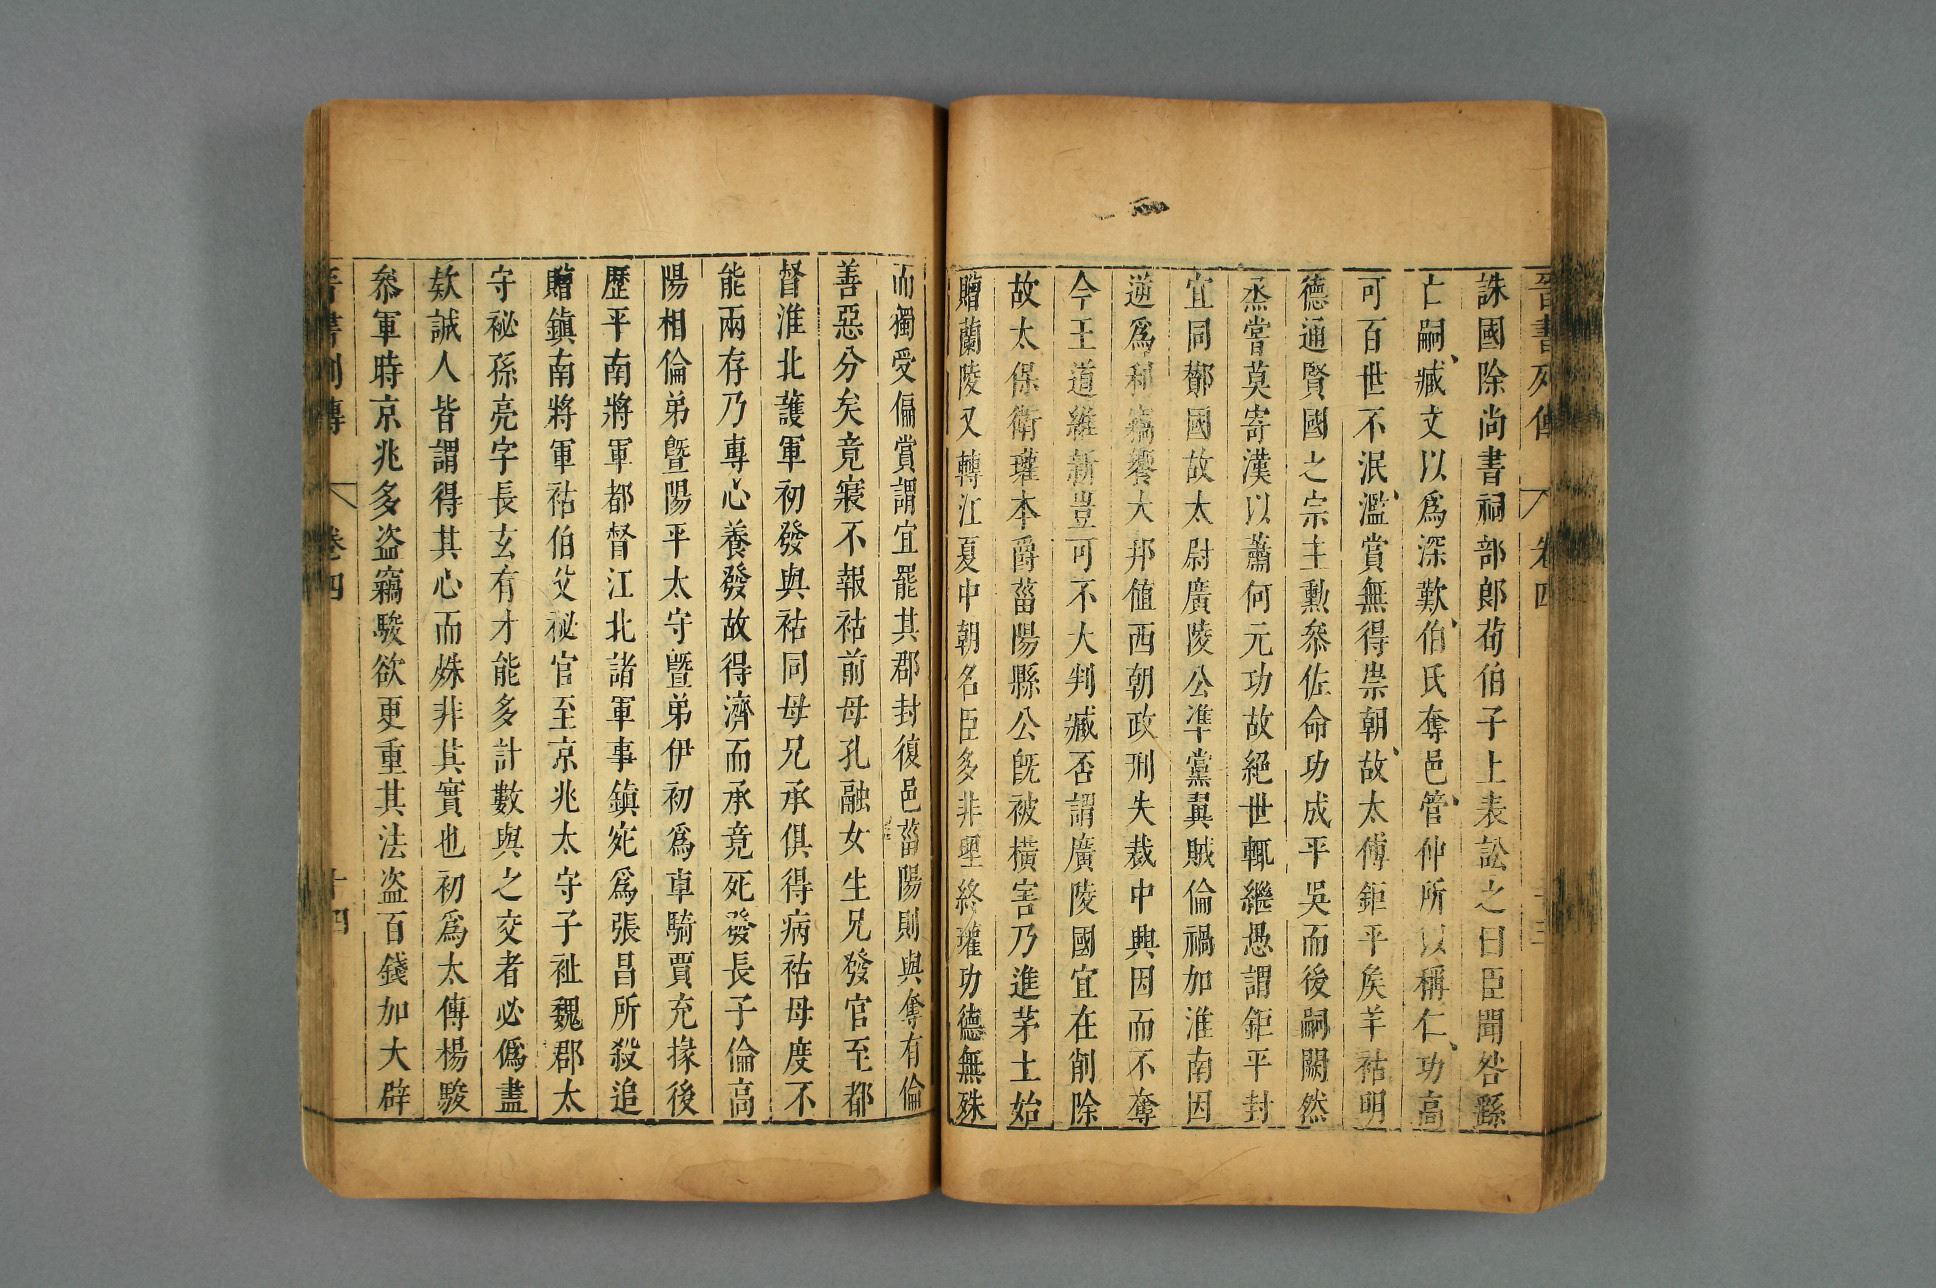 晉書列傳 卷四 十三
誅國除尚書祠部郎荀伯子上表訟之曰臣聞咎繇
亡嗣臧文以爲深歎伯氏奪邑管仲所以稱仁功高
可百世不泯濫賞無得崇朝故太傅鉅平矦羊祜明
德通賢國之宗主勲叅佐命功成平吳而後嗣闕然
烝嘗莫寄漢以蕭何元功故絕世輒繼愚謂鉅平封
宜同酇國故太尉廣陵公準黨翼賊倫禍加淮南因
逆爲利竊饗大邦値西朝政刑失裁中興因而不奪
今王道維新豈可不大判臧否謂廣陵國宜在削除
故太保衛瓘本爵菑陽縣公旣被橫害乃進茅土始
贈蘭陵又轉江夏中朝名臣多非理終瓘功德無殊
而獨受偏賞謂宜罷其郡封復邑菑陽則與奪有倫
善惡分矣竟寢不報祜前母孔融女生兄發官至都
督淮北護軍初發與祜同母兄承俱得病祜母度不
能兩存乃專心養發故得濟而承竟死發長子倫高
陽相倫弟曁陽平太守曁弟伊初爲車騎賈充掾後
歷平南將軍都督江北諸軍事鎮宛爲張昌所殺追
贈鎮南將軍祜伯父祕官至京兆太守子祉魏郡太
守祕孫亮字長玄有才能多計數與之交者必僞盡
欵誠人皆謂得其心而殊非其實也初爲太傅楊駿
叅軍時京兆多盜竊駿欲更重其法盜百錢加大辟
晉書列傳 卷四 十四